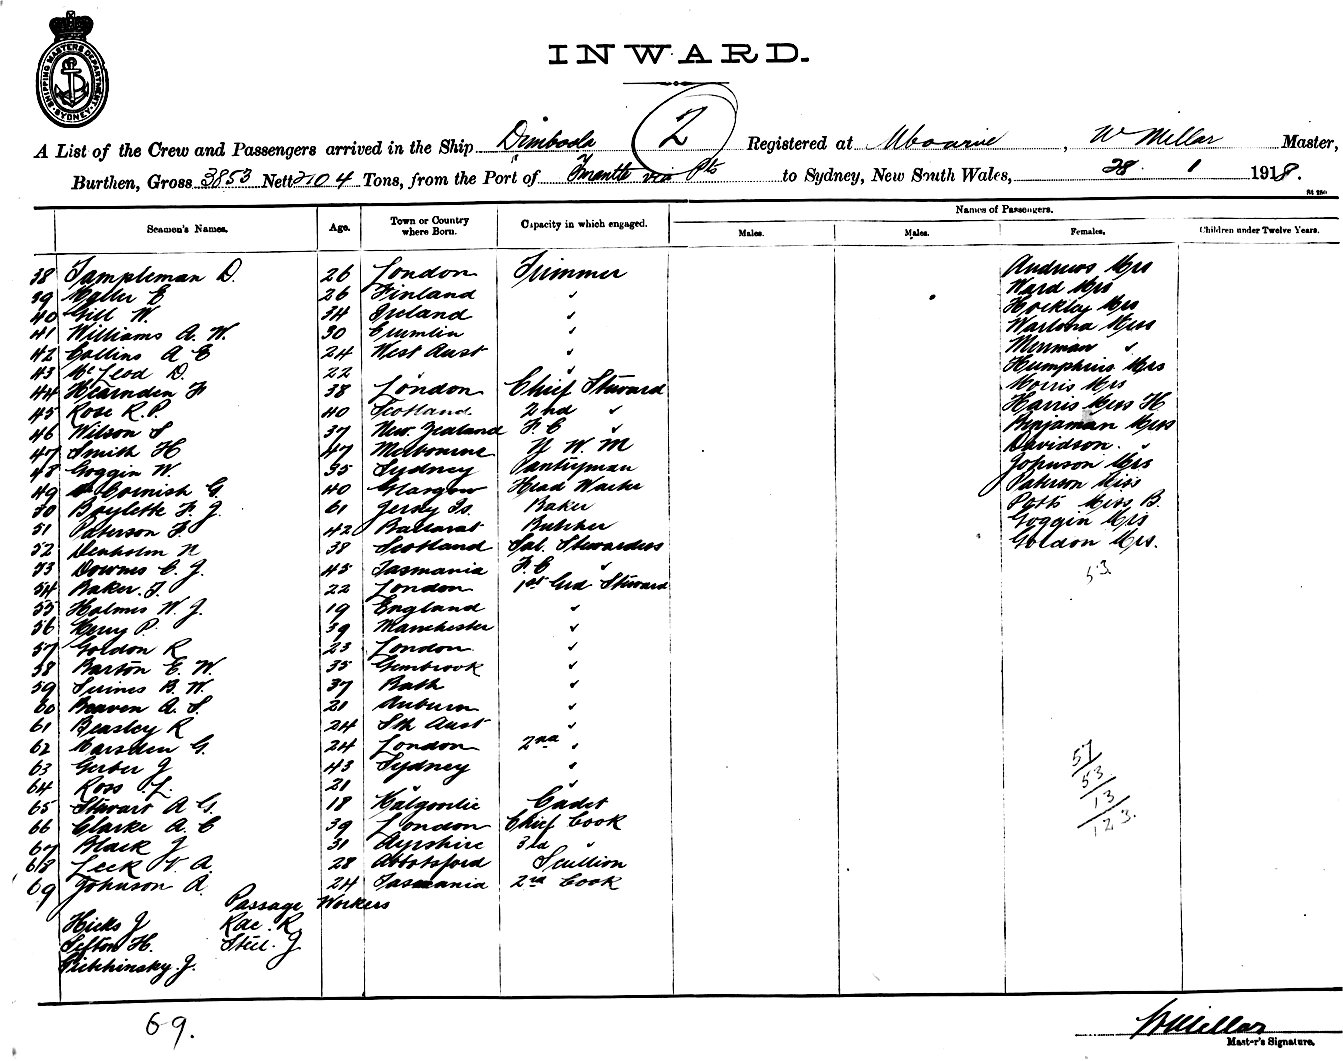 SHIPPING MASTERS DEPARTMENT. SYDNEY.
INWARD.
2
A List of the Crew and Passengers arrived in the Ship Dimboola Registered at Mbourne, W Millar Master,
Burthen, Gross 3853 Nett 2104 Tons, from the Port of Fmantle via Pts to Sydney, New South Wales, 28 1 1918.
St 250
Seamen's Names. Age. Town or Country where Born. Capacity in which engaged. Names of Passengers.
Males. Males. Females. Children under Twelve Years.
38 Tampleman D. 26 London Trimmer Andrews Mrs
39 Maller E 26 Finland " Ward Mrs
40 Gill W. 34 Ireland " Hockley Mrs
41 Williams A. W. 30 Crumlin " Miss
42 Collins A E 24 West Aust " Merriman "
43 McLeod D. 22 " " Humphries Mrs
44 Hearnden F 38 London Chief Steward Morris Mrs
45 Rose R. P. 40 Scotland 2nd " Harris Miss H
46 Wilson S 37 New Zealand F. C " Benjaman Miss
47 Smith H 47 Melbourne N W. M Davidson "
48 Goggin W. 35 Sydney Pantryman Johnson Mrs
49 Cornish G. 40 Glasgow Head Waiter Paterson Miss
50 Boylette F. J. 61 Jersey Is. Baker Potts Miss B.
51 Paterson F. 42 Ballarat Butcher Goggin Mrs
52 Denholm N 38 Scotland Sal. Stewardess Goldon Mrs.
53 Downes C. J. 45 Tasmania F. C " 53
54 Baker. F. 22 London 1st Grd Steward
55 Holmes W. J. 19 England "
56 Kerry P. 39 Manchester "
57 Goldon R 23 London "
58 Barton E. W. 35 Gembrook "
59 B. W. 37 Bath "
60 Beaven A. S. 21 Auburn "
61 Beasley R 24 Sth Aust "
62 Marsden G. 24 London 2nd "
63 Gerber J 43 Sydney " 57
64 Ross L. 21 " " 53
65 Stewart A G. 18 Kalgoorlie Cadet 13
66 Clarke A. C 39 London Chief Cook 123.
67 Black J 31 Ayrshire 3rd "
68 Leck A. 28 Abbotsford Scullion
69 Johnson A. 24 Tasmania 2nd Cook
Passage Workers
Hicks J Rae. R.
Sefton H. Still. J
Pitchinsky. J.
69.
W Millar
Master's Signature.